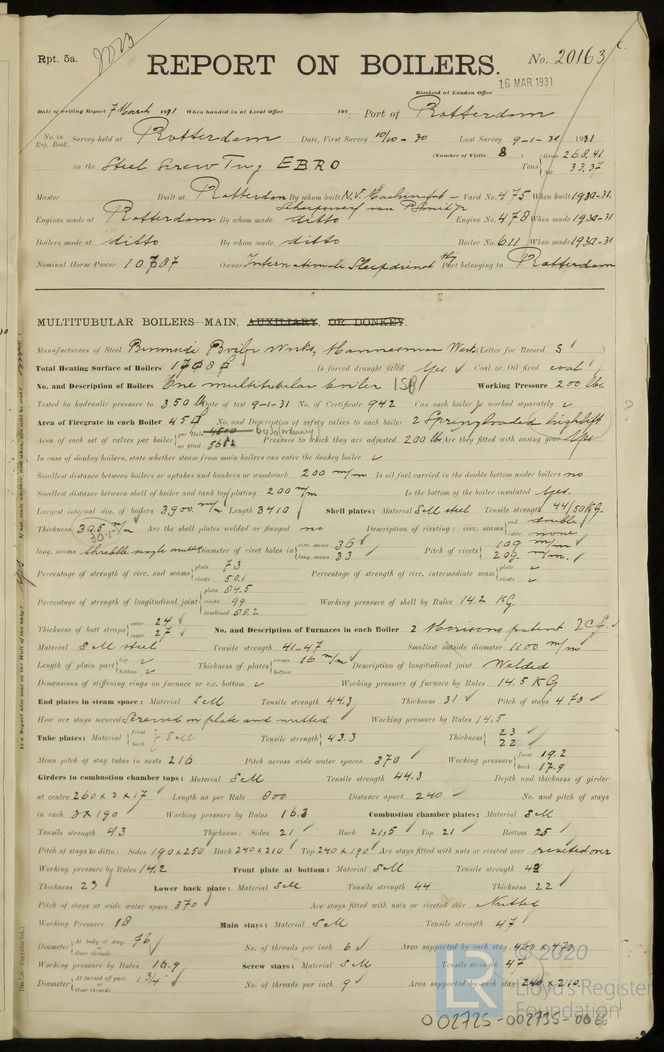 Rpt. 5a.
REPORT ON BOILERS.
No. 20163
16 MAR 1931
Received at London Office
Date of writing Report 7 March 1931 When handed in at Local Office 192 Port of Rotterdam
No. in Reg. Book. Survey held at Rotterdam Date, First Survey 10/10-30 Last Survey 9-1-31 1931
(Number of Visits 8) Gross 268.41
on the Steel Screw Tug EBRO Tons Net 33.37
Master Built at Rotterdam By whom built N.V. Yard No. 475 When built 1930-31
Engines made at Rotterdam By whom made ditto Engine No. 478 When made 1930-31
Boilers made at ditto By whom made ditto Boiler No. 611 When made 1930-31
Nominal Horse Power Owners Internationale Sleepdienst Port belonging to Rotterdam
MULTITUBULAR BOILERS MAIN, AUXILIARY, OR DONKEY.
Manufacturers of Steel Works, Mannesman Werk (Letter for Record S)
Total Heating Surface of Boilers Is forced draught fitted Yes Coal or Oil fired coal
No. and Description of Boilers One multitubular boiler 1SB Working Pressure 200 lbs.
Tested by hydraulic pressure to 350 lb Date of test 9-1-31 No. of Certificate 942 Can each boiler be worked separately
Area of Firegrate in each Boiler No. and Description of safety valves to each boiler 2 Springloaded highlift
Area of each set of valves per boiler per Rule as fitted Pressure to which they are adjusted 200 lbs Are they fitted with easing gear Yes
In case of donkey boilers, state whether steam from main boilers can enter the donkey boiler
Smallest distance between boilers or uptakes and bunkers or woodwork 200 m/m Is oil fuel carried in the double bottom under boilers no
Smallest distance between shell of boiler and tank top plating 200 m/m Is the bottom of the boiler insulated Yes.
Largest internal dia. of boilers 3900 m/m Length 3410 Shell plates: Material S.M. steel Tensile strength 44/50 KG.
Thickness 30.5 m/m Are the shell plates welded or flanged no Description of riveting: circ. seams end double inter. none
long. seams Diameter of rivet holes in circ. seams 36 long. seams 33 Pitch of rivets 109 m/m 209 m/m.
Percentage of strength of circ. end seams plate 73 rivets 50.1 Percentage of strength of circ. intermediate seam plate rivets
Percentage of strength of longitudinal joint plate 84.5 rivets 99 combined 88.2 Working pressure of shell by Rules 14.2 KG.
Thickness of butt straps outer 24 inner 27 No. and Description of Furnaces in each Boiler 2 Morisons patent
Material S M steel Tensile strength 41-47 Smallest outside diameter 1100 m/m
Length of plain part top bottom Thickness of plates crown bottom 16 m/m Description of longitudinal joint Welded
Dimensions of stiffening rings on furnace or c.c. bottom Working pressure of furnace by Rules 14.5 KG
End plates in steam space: Material S M Tensile strength 44.3 Thickness 31 Pitch of stays 470
How are stays secured Screwed in plate and nutted Working pressure by Rules 14.5
Tube plates: Material front back S M Tensile strength 43.3 Thickness 23 22
Mean pitch of stay tubes in nests 216 Pitch across wide water spaces 370 Working pressure front 19.2 back 17.9
Girders to combustion chamber tops: Material S M Tensile strength 44.3 Depth and thickness of girder
at centre 260 x 2 x 17 Length as per Rule 800 Distance apart 240 No. and pitch of stays
in each 3 x 190 Working pressure by Rules 16.3 Combustion chamber plates: Material S M
Tensile strength 43 Thickness: Sides 21 Back 21,5 Top 21 Bottom 25
Pitch of stays to ditto: Sides 190 x 250 Back 240 x 210 Top 240 x 190 Are stays fitted with nuts or riveted over riveted over
Working pressure by Rules 14.2 Front plate at bottom: Material S M Tensile strength
Thickness 23 Lower back plate: Material S M Tensile strength 44 Thickness 22
Pitch of stays at wide water space 370 Are stays fitted with nuts or riveted over Nutted
Working Pressure 18 Main stays: Material S M Tensile strength 47
Diameter At body of stay, or Over threads 76 No. of threads per inch 6 Area supported by each stay 460 x 470
Working pressure by Rules 16.9 Screw stays: Material S M Tensile strength 47
Diameter At turned off part, or Over threads 1 3/4" No. of threads per inch 9 Area supported by each stay 240 x 210
© 2020
LR
Lloyd's Register
Foundation
002725-002735-0066